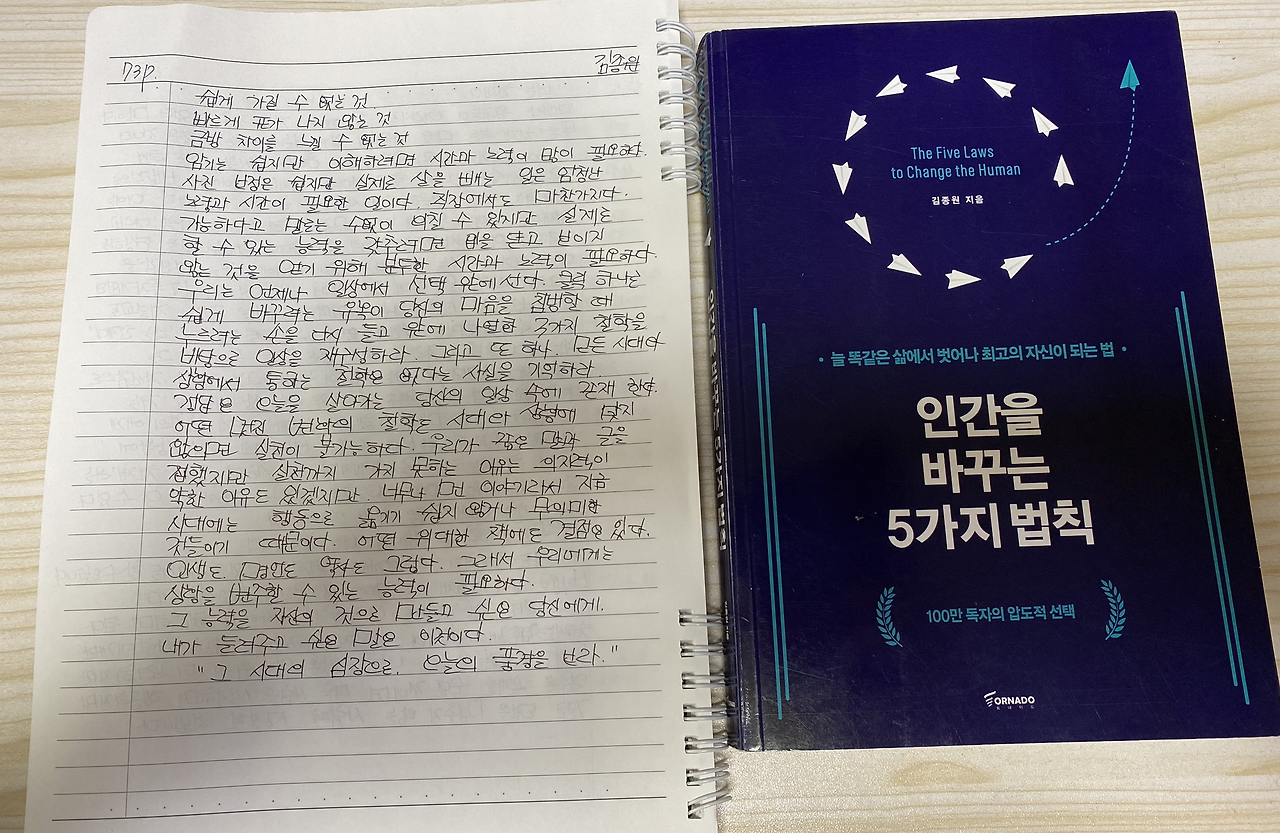 73p.
김종원
쉽게 가질 수 없는 것
빠르게 티가 나지 않는 것
금방 차이를 느낄 수 없는 것
암기는 쉽지만 이해하려면 시간과 노력이 많이 필요하다.
사진 보정은 쉽지만 실제로 살을 빼는 일은 엄청난
노력과 시간이 필요한 일이다. 직장에서도 마찬가지다.
가능하다고 말로는 수없이 외칠 수 있지만 실제로
할 수 있는 능력을 갖추려면 입을 닫고 보이지
않는 것을 얻기 위해 분투한 시간과 노력이 필요하다.
우리는 언제나 일상에서 선택 앞에 선다. 클릭 하나로
쉽게 바꾸려는 유혹이 당신의 마음을 침범할 때
누르려는 손을 다시 들고 앞에 나열한 3가지 철학을
바탕으로 일상을 재구성하라. 그리고 또 하나. 모든 시대와
상황에서 통하는 철학은 없다는 사실을 기억하라
정답은 오늘을 살아가는 당신의 일상 속에 존재 한다.
어떤 멋진 철학도 시대와 상황에 맞지
않으면 실현이 불가능하다. 우리가 좋은 말과 글을
접했지만 실천까지 가지 못하는 이유는 의지력이
약한 이유도 있겠지만. 너무나 먼 이야기라서 지금
시대에는 행동으로 옮기기 쉽지 않거나 무의미한
것들이기 때문이다. 어떤 위대한 책에도 결점은 있다.
인생도 명언도 역사도 그렇다. 그래서 우리에게는
상황을 변주할 수 있는 능력이 필요하다.
그 능력을 자신의 것으로 만들고 싶은 당신에게.
내가 들려주고 싶은 말은 이것이다.
"그 시대의 심장으로. 오늘의 풍경을 보라."
The Five Laws
to Change the Human
김종원 지음
• 늘 똑같은 삶에서 벗어나 최고의 자신이 되는 법 •
인간을
바꾸는
5가지 법칙
100만 독자의 압도적 선택
TORNADO
토네이도